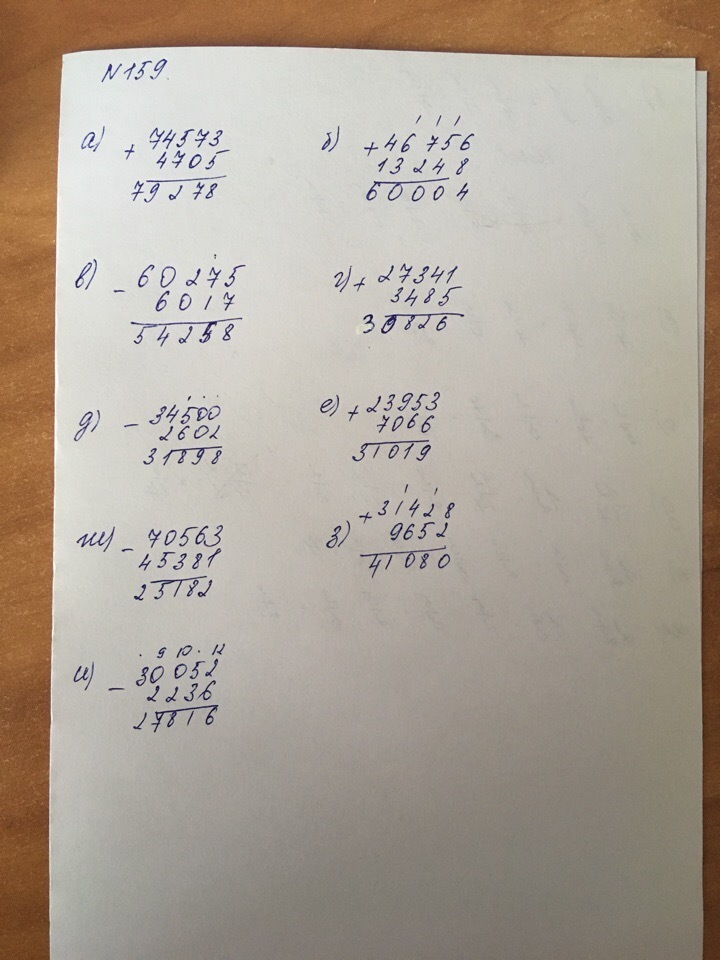 N159.
а) + 74573
4705
79278
б) + 46756
13248
60004
в) - 60275
6017
54258
г) + 27341
3485
30826
д) - 34500
2602
31898
е) + 23953
7066
31019
ж) - 70563
45381
25182
з) + 31428
9652
41080
9 10 12
и) - 30052
2236
27816